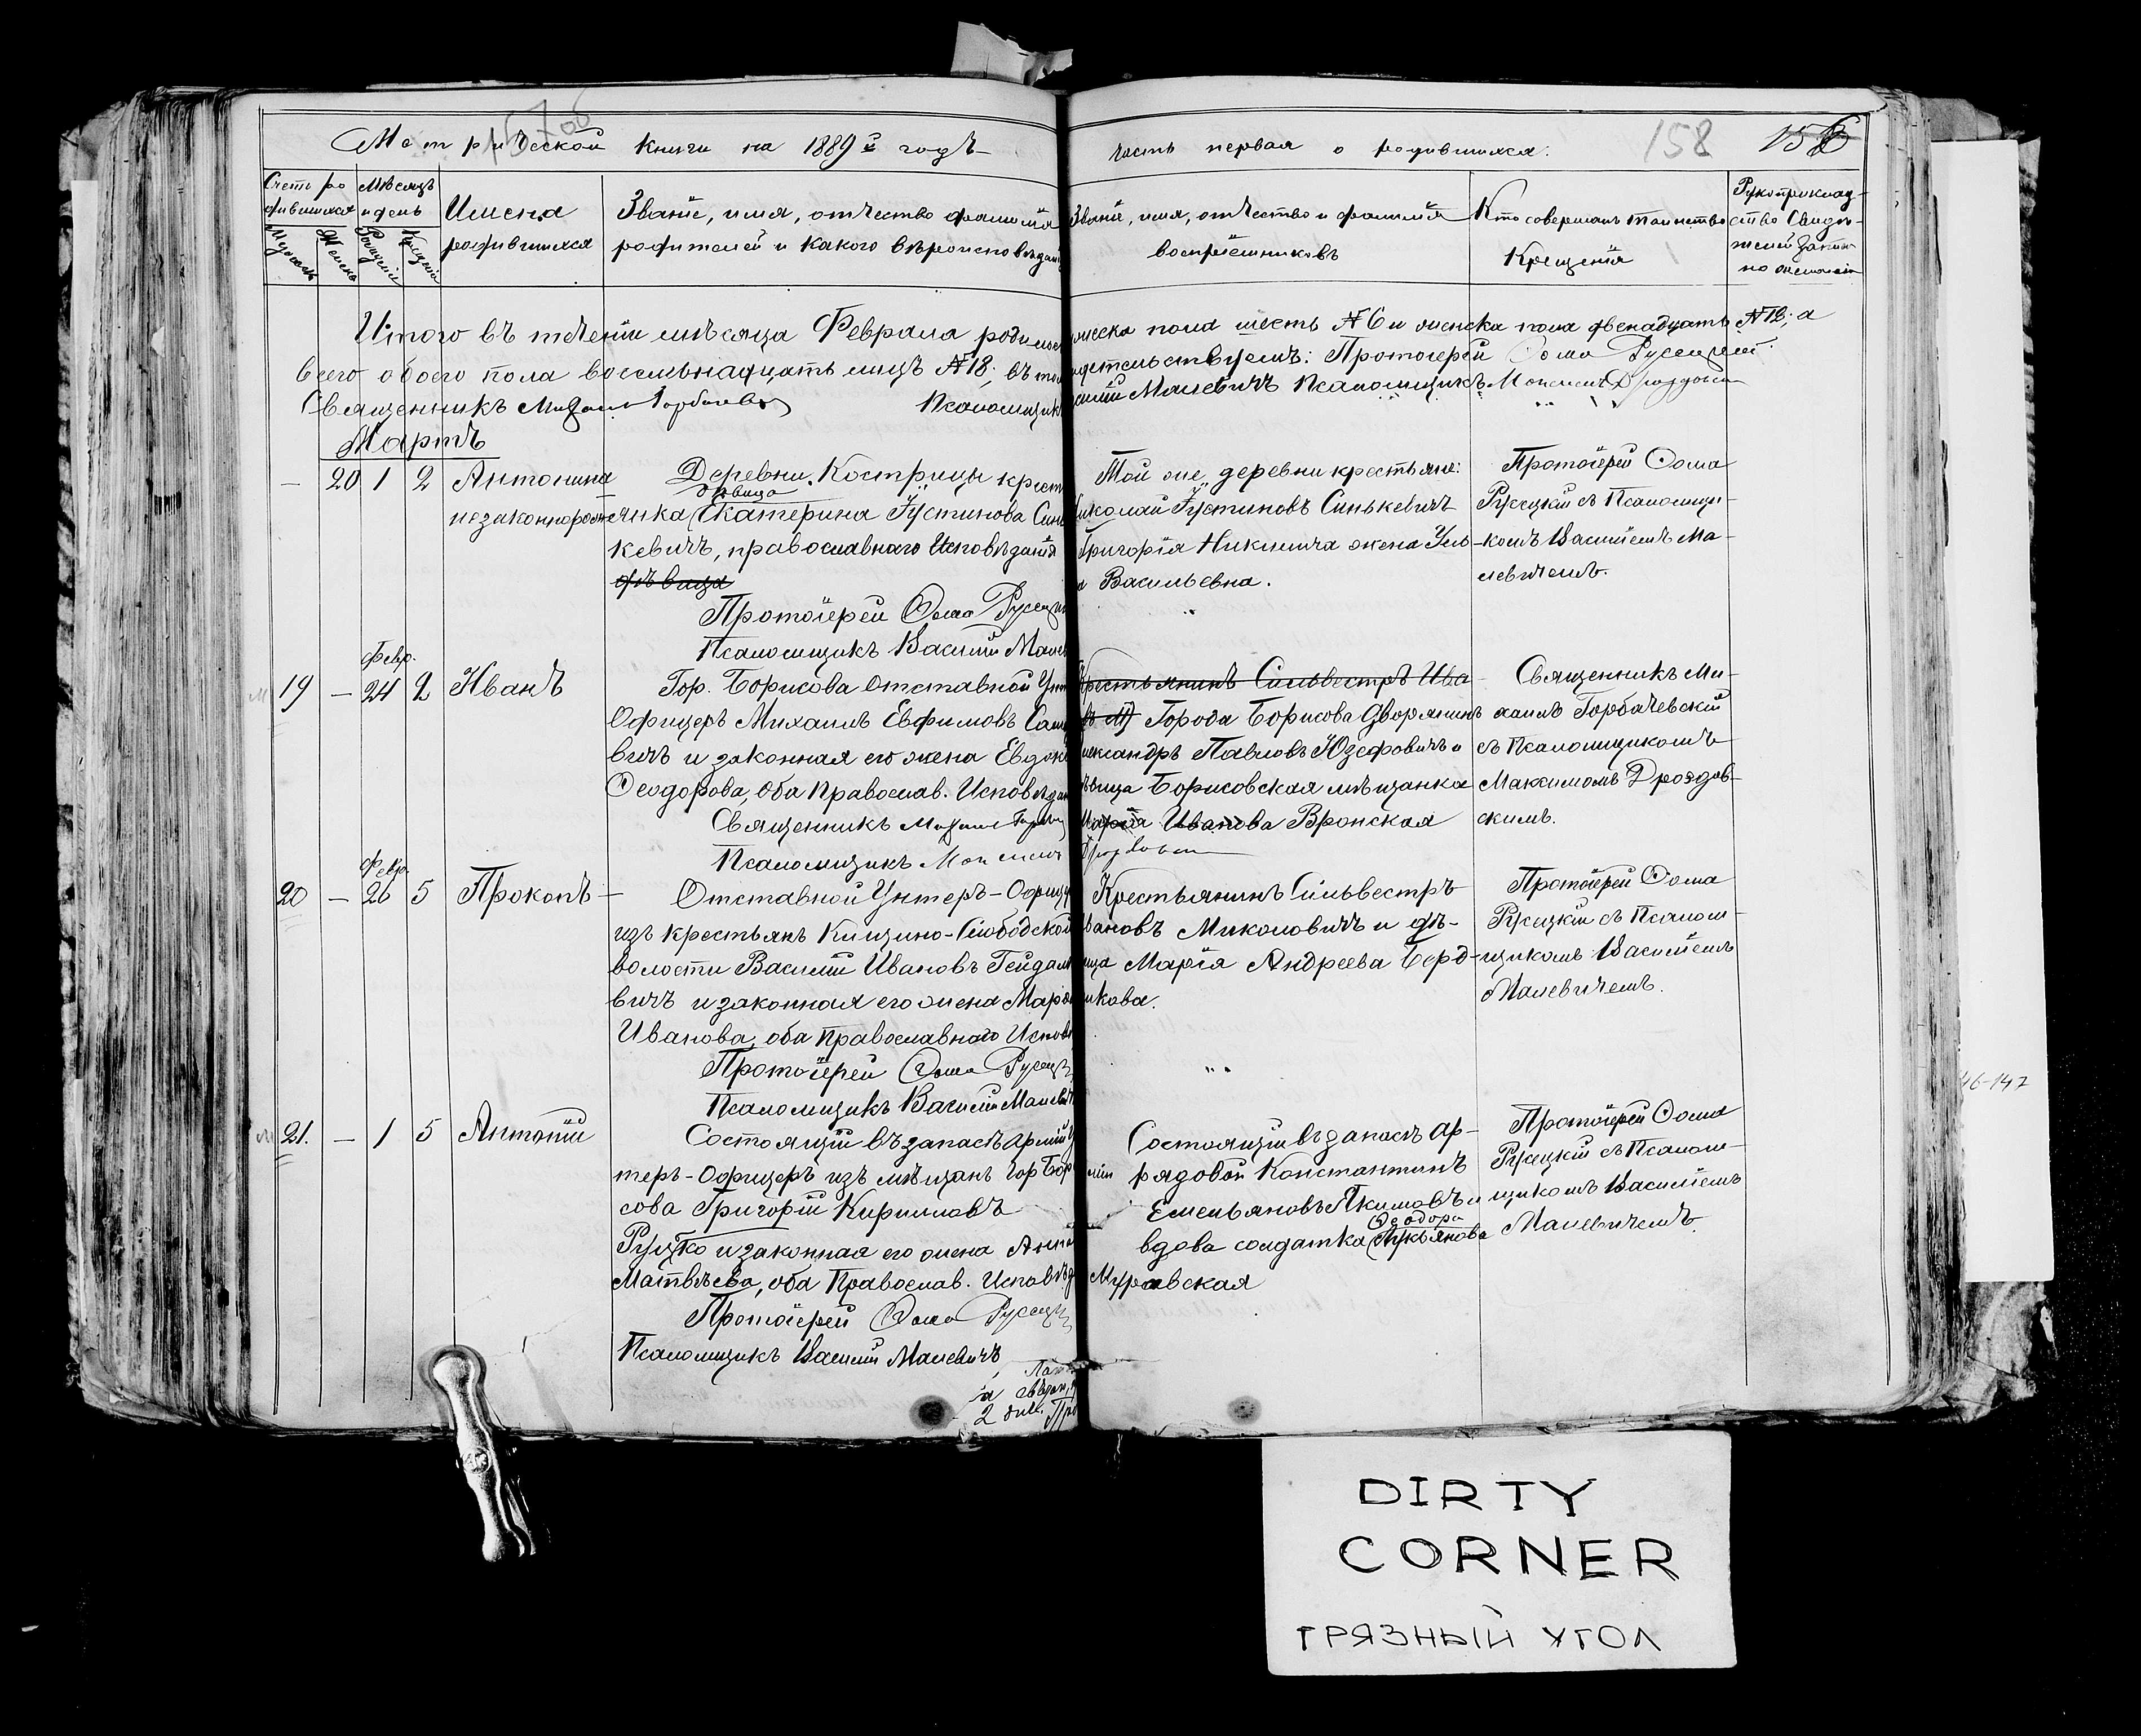 Метрической книги на 1889й годъ
часть первая о родившихся.
158
Счетъ ро
дившихся
Мѣсяцъ
и день
Имена
родившихся
Званіе, имя, отчество фамилія
родителей и какого вѣроисповѣдан
Званіе, имя, отчество и фамилія
воспріемниковъ
Кто совершалъ таинство
Крещенія
Рукоприклад-
ство Свидѣ-
телей записи
по желанію
Итого въ теченіи мѣсяца Февраля родилось мужеска пола шесть №6 и женска пола двенадцать №12; а
всего обоего пола восемьнадцать лицъ №18; въ том свидетельствуемъ: Протоіерей Ѳома Русецкій
Священникъ Михаилъ Горбачевск Псаломщикъ Василій Малевичъ Псаломщикъ Максимъ Дроздовск
Мартъ
— 20 1 2 Антонина
незаконнорожд
Деревни Кострицы крест
дѣвица
янка Екатерина Іустинова Синь
кевичъ, православнаго Исповѣданія
дѣвица
Протоіерей Ѳома Русецк
Псаломщикъ Василій Малев
Той же деревни крестьяне:
Николай Іустиновъ Синькевичъ
Григорія Никитича жена Уль-
я Васильевна.
Протоіерей Ѳома
Русецкій съ Псаломщи-
комъ Василіемъ Ма-
левичемъ.
Февр.
19 — 24 2 Иванъ
Гор. Борисова Отставной Унт
Офицеръ Михаилъ Евфимовъ Саш
вичъ и законная его жена Евдок
Ѳеодорова, оба Православ. Исповѣдан
Священникъ Михаилъ Горбач
Псаломщикъ Максимъ Дроздовск
Крестьянинъ Сильвестръ Ива
въ М) Города Борисова дворянинъ
Александръ Павловъ Юзефовичъ и
дѣвица Борисовская мѣщанка
Марія Иванова Вронская
Священникъ Ми-
хаилъ Горбачевскій
съ Псаломщикомъ
Максимомъ Дроздов-
скимъ.
Февр.
20 — 26 5 Прокопъ
Отставной Унтеръ-Офице
изъ крестьянъ Клицино-Слободской
волости Василій Ивановъ Гейдал
вичъ и законная его жена Марѳ
Иванова, оба Православнаго Испов
Протоіерей Ѳома Русецк
Псаломщикъ Василій Малевич
Крестьянинъ Сильвестръ
Ивановъ Миколовичъ и дѣ-
вица Марія Андреева Борд-
икова.
Протоіерей Ѳома
Русецкій съ Псалом-
щикомъ Василіемъ
Малевичемъ.
21. — 1 5 Антоній
Состоящій въ запасѣ арміи Ун
теръ-Офицеръ изъ мѣщанъ гор Бор
сова Григорій Кирилловъ
Руцко и законная его жена Анна
Матвѣева, оба Православ. Исповѣд
Протоіерей Ѳома Русецк
Псаломщикъ Василій Малевичъ
Состоящій въ запасѣ ар-
міи рядовой Константинъ
Емельяновъ Якимовъ и
Ѳеодора
вдова солдатка Лукьянова
Муравская
Протоіерей Ѳома
Русецкій съ Псалом-
щикомъ Василіемъ
Малевичемъ.
46-147
DIRTY
CORNER
ГРЯЗНЫЙ УГОЛ